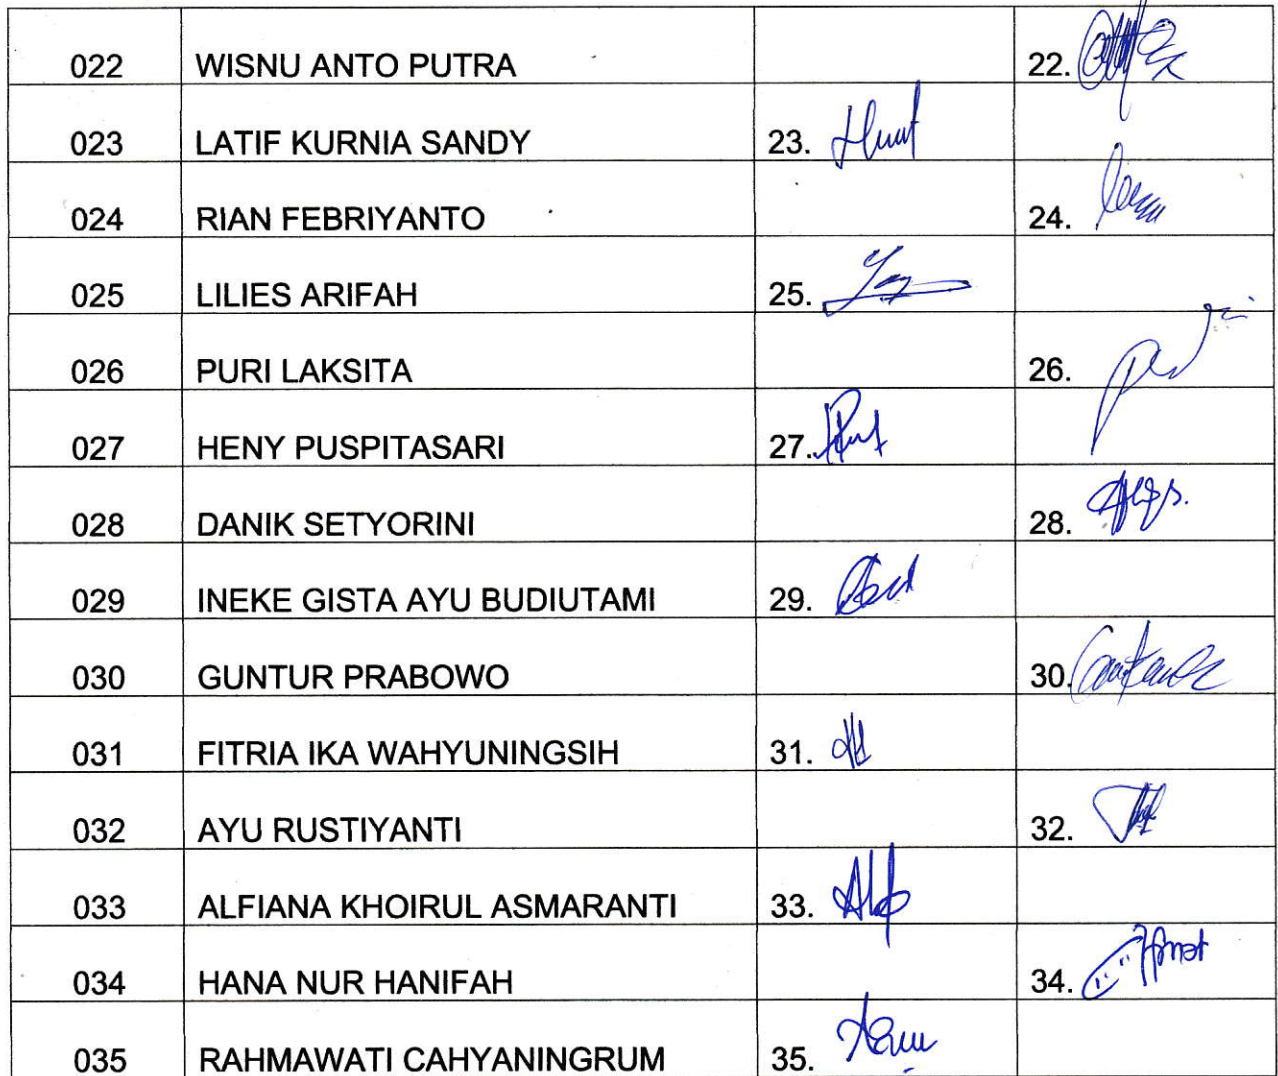 022 WISNU ANTO PUTRA 22.
023 LATIF KURNIA SANDY 23.
024 RIAN FEBRIYANTO 24.
025 LILIES ARIFAH 25.
026 PURI LAKSITA 26.
027 HENY PUSPITASARI 27.
028 DANIK SETYORINI 28.
029 INEKE GISTA AYU BUDIUTAMI 29.
030 GUNTUR PRABOWO 30.
031 FITRIA IKA WAHYUNINGSIH 31.
032 AYU RUSTIYANTI 32.
033 ALFIANA KHOIRUL ASMARANTI 33.
034 HANA NUR HANIFAH 34.
035 RAHMAWATI CAHYANINGRUM 35.